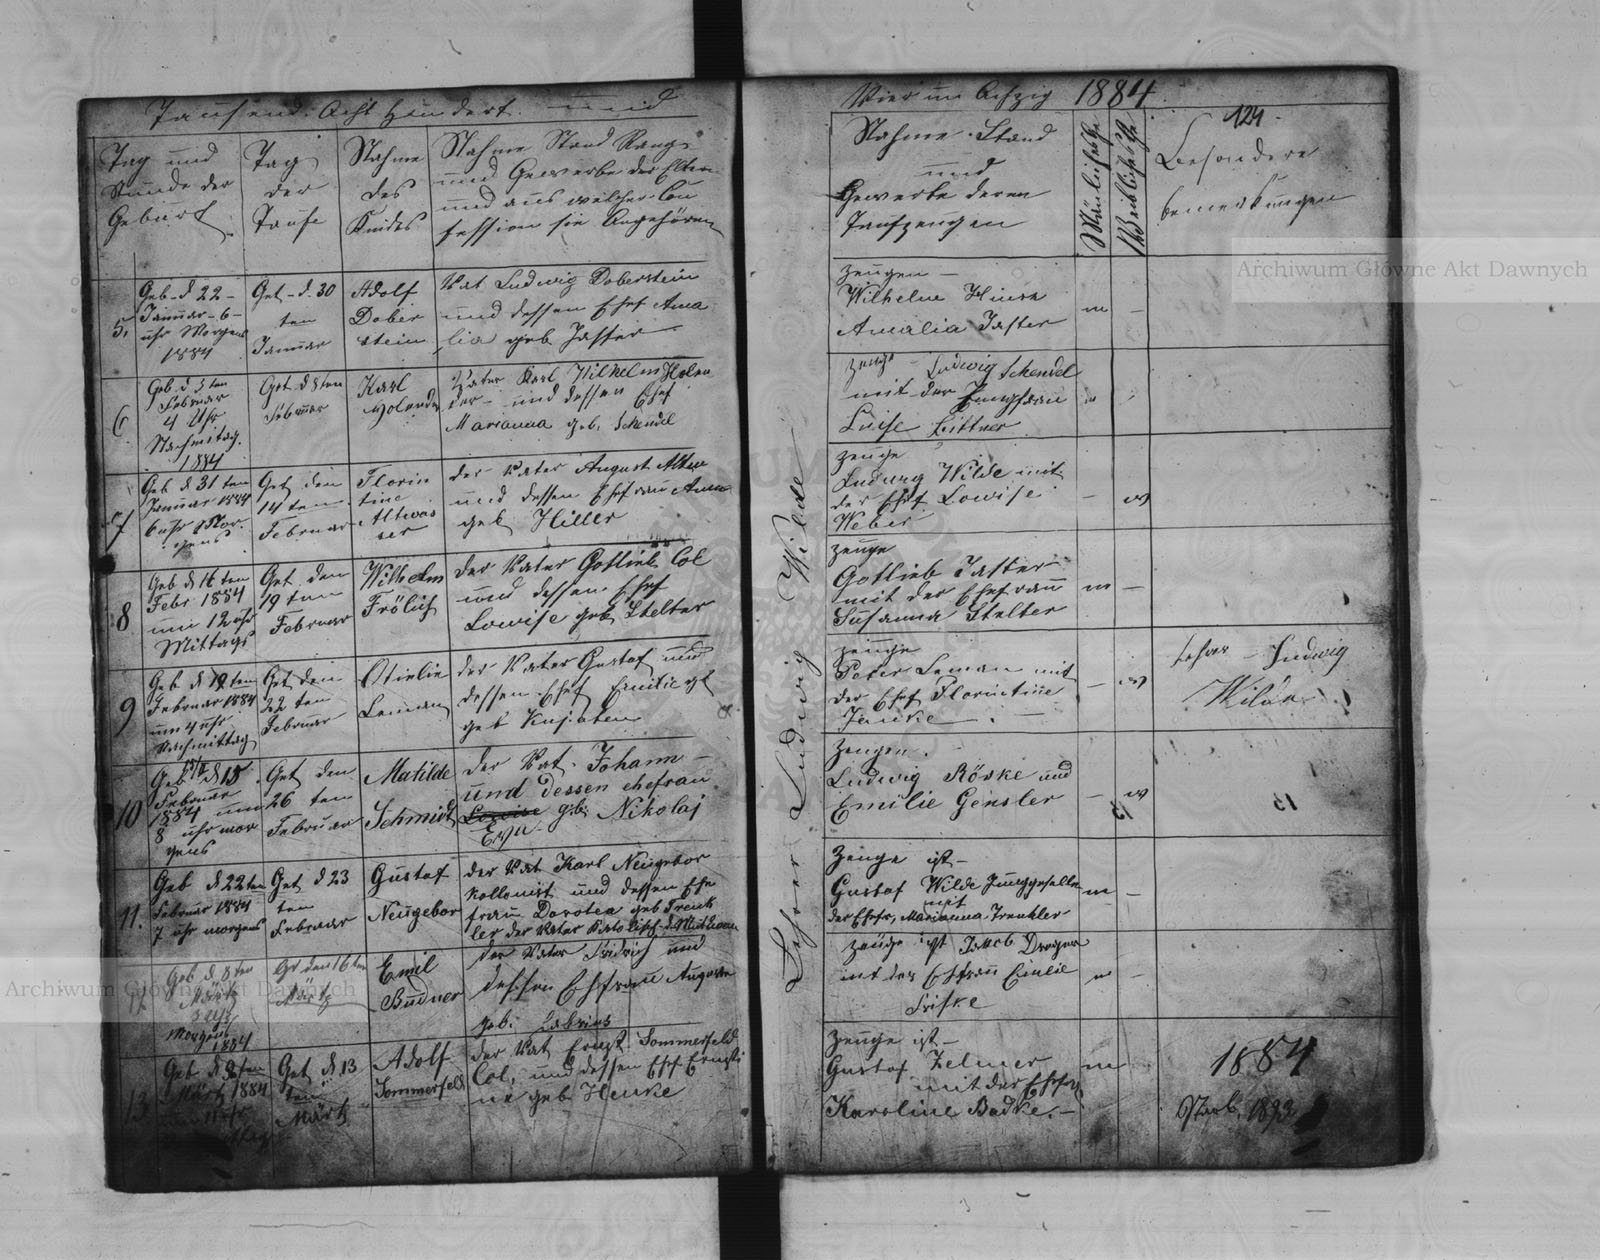 Tausend Acht Hundert und
Tag und
Stunde der
Geburt
Tag
der
Taufe
Nahme
des
Kindes
Nahme Stand Rang
und Gewerbe der Eltern
und aus welcher Con
fession sie Angehören
5.
Geb. d 22
Januar 6
uhr Morgens
1884
Get. d. 30
ten
Januar
Adolf
Dober
stein
Vat Ludwig Doberstein
und dessen Ehef Ama
lia geb Jaster
6
Geb. d 3 ten
Februar
4 Uhr
Nachmitag.
1884
Get d 8ten
Februar
Karl
Holender
Vater Karl Wilhelm Holen
der und dessen Ehef
Marianna geb. Schendel
7
Geb d 31 ten
Januar 1884
6 uhr Mor
gens
Get den
14 ten
Februar
Floren
tine
Altwas
ser
der Vater August Altwa
und dessen Ehefrau Anna
geb Hiller
8
Geb d 16 ten
Febr 1884
um 12 uhr
Mittags
Get den
19 ten
Februar
Wilhelm
Frölich
der Vater Gottlieb Col
und dessen Ehef
Lowise geb Stelter
9
Geb d 19 ten
Februar 1884
um 4 uhr
Nachmittag
Get den
22 ten
Februar
Otielie
Leman
der Vater Gustaf und
dessen Ehef Emilie
geb Kujaten
10
Geb d 15
Februar
1884 um
8 uhr mor
gens
Get den
26 ten
Februar
Matilde
Schmidt
der Vat. Johann
und dessen ehefrau
Lowise geb. Nikolaj
Eva
11.
Geb d 22ten
Februar 1884
7 uhr morgens
Get d 23
ten
Februar
Gustaf
Neugebor
der Vat Karl Neugebor
kollonist und dessen Ehe
frau Dorotea geb Trenk
ler der Vater Katolisch d Mut Evan
12
Geb d. 8 ten
Märtz
3 uhr
Morgens
1884
Get den 16 ten
Märtz
Emil
Budner
der Vater Fridrich und
dessen Ehfrau Auguste
geb.
13
Geb d 9 ten
Märtz 1884
11 uhr
Get d 13
ten
Märtz
Adolf
Sommerfeld
der Vat Ernst Sommerfeld
Col. und dessen Ehf Ernsti
ne geb Henke
Lehrer Ludwig Wilde
Vier un Achzig 1884
124.
Nahme Stand
und
Gewerbe deren
Taufzeugen
Mänlichesge
Weiblichesge
Besondere
bemerkungen
Zeugen
Wilhelm
Amalia Jaster
m –
Zeuge Ludwig Schendel
mit der Jungfrau
Luise Bittner
m
Zeuge
Ludwig Wilde mit
der Ehef Lowise
Weber
– w
Zeuge
Gotlieb Jaster
mit der Ehefrau
Susanna Stelter
m –
Zeuge
Peter Leman mit
der Ehef Florintine
Jenike
– w
Lehrer Ludwig
Wilde
Zeugen
Ludwig Röske und
Emilie Gensler
– w
Zeuge ist
Gustaf Wilde Junggeselle
mit
der Ehefr. Marianna Trenkler
m –
Zeuge ist Jakob Drager
mit der Ehfrau Emilie
Friske
m –
Zeuge ist
Gustaf Zelmer
mit der Ehefr
Karoline Badke.
m
1884
Archiwum Główne Akt Dawnych
Archiwum Główne Akt Dawnych